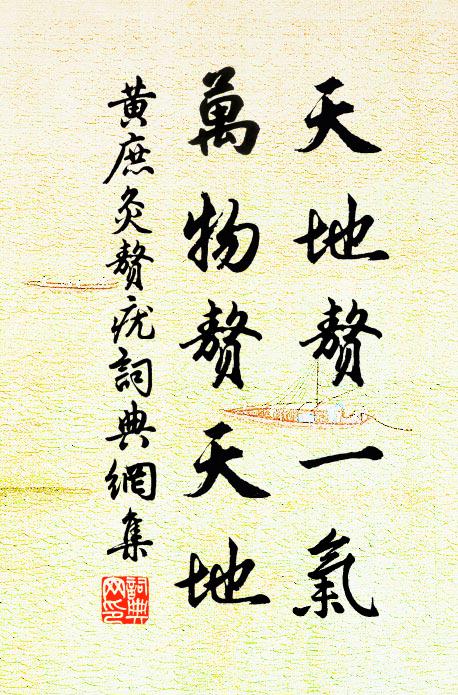 天地贅一氣
萬物贅天地
黃庶灸贅疣詞典網集
詞典網印